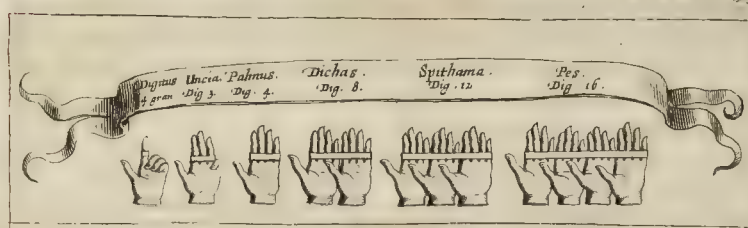 Digitus Uncia. Palmus. Dichas. Spithama. Pes.
4 gran Dig 3. Dig. 4. Dig. 8. Dig. 12 Dig 16.